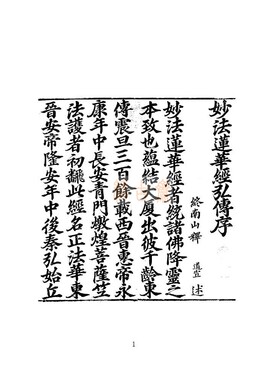 妙法蓮華經弘傳序
終南山釋 道宣 述
妙法蓮華經者統諸佛降靈之
本致也蘊結大厦出彼千齡東
傳震旦三百餘載西晉惠帝永
康年中長安青門燉煌菩薩竺
法護者初翻此經名正法華東
晉安帝隆安年中後秦弘始丘
1